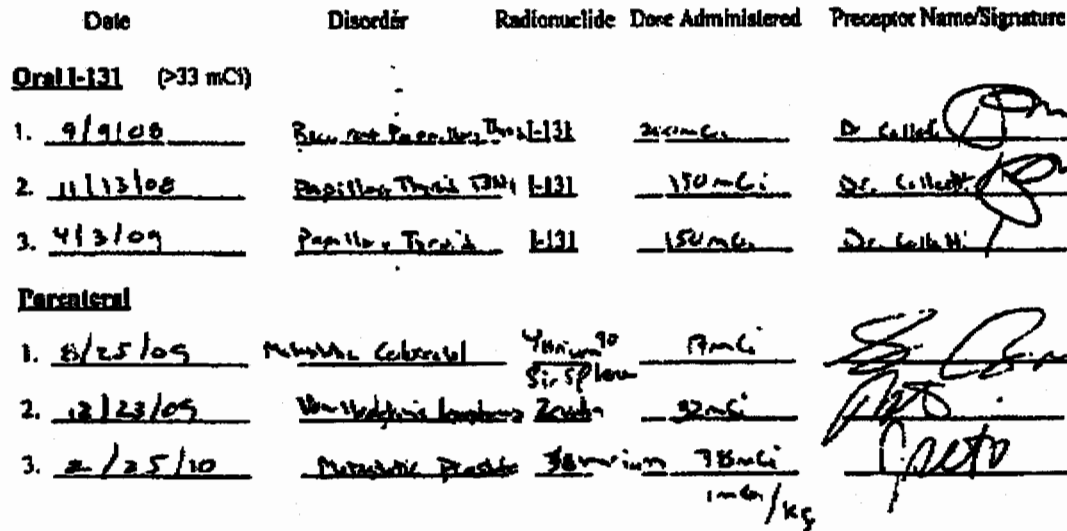 Date Disorder Radionuclide Dose Administered Preceptor Name/Signature
Oral I-131 (>33 mCi)
1. 9/9/08 I-131 Dr
2. 11/13/08 Papillary Thyroid I-131 150 mCi Dr. Colletti
3. 4/3/09 Papillary Thyroid I-131 150 mCi Dr. Colletti
Parenteral
1. 8/25/09 Metastatic Colorectal Yttrium 90 17 mCi
Sir Sphere
2. 12/23/09 Non Hodgkins Lymphoma Zevalin 32 mCi
3. 2/25/10 Metastatic Prostate 78 mCi
1 mCi/kg